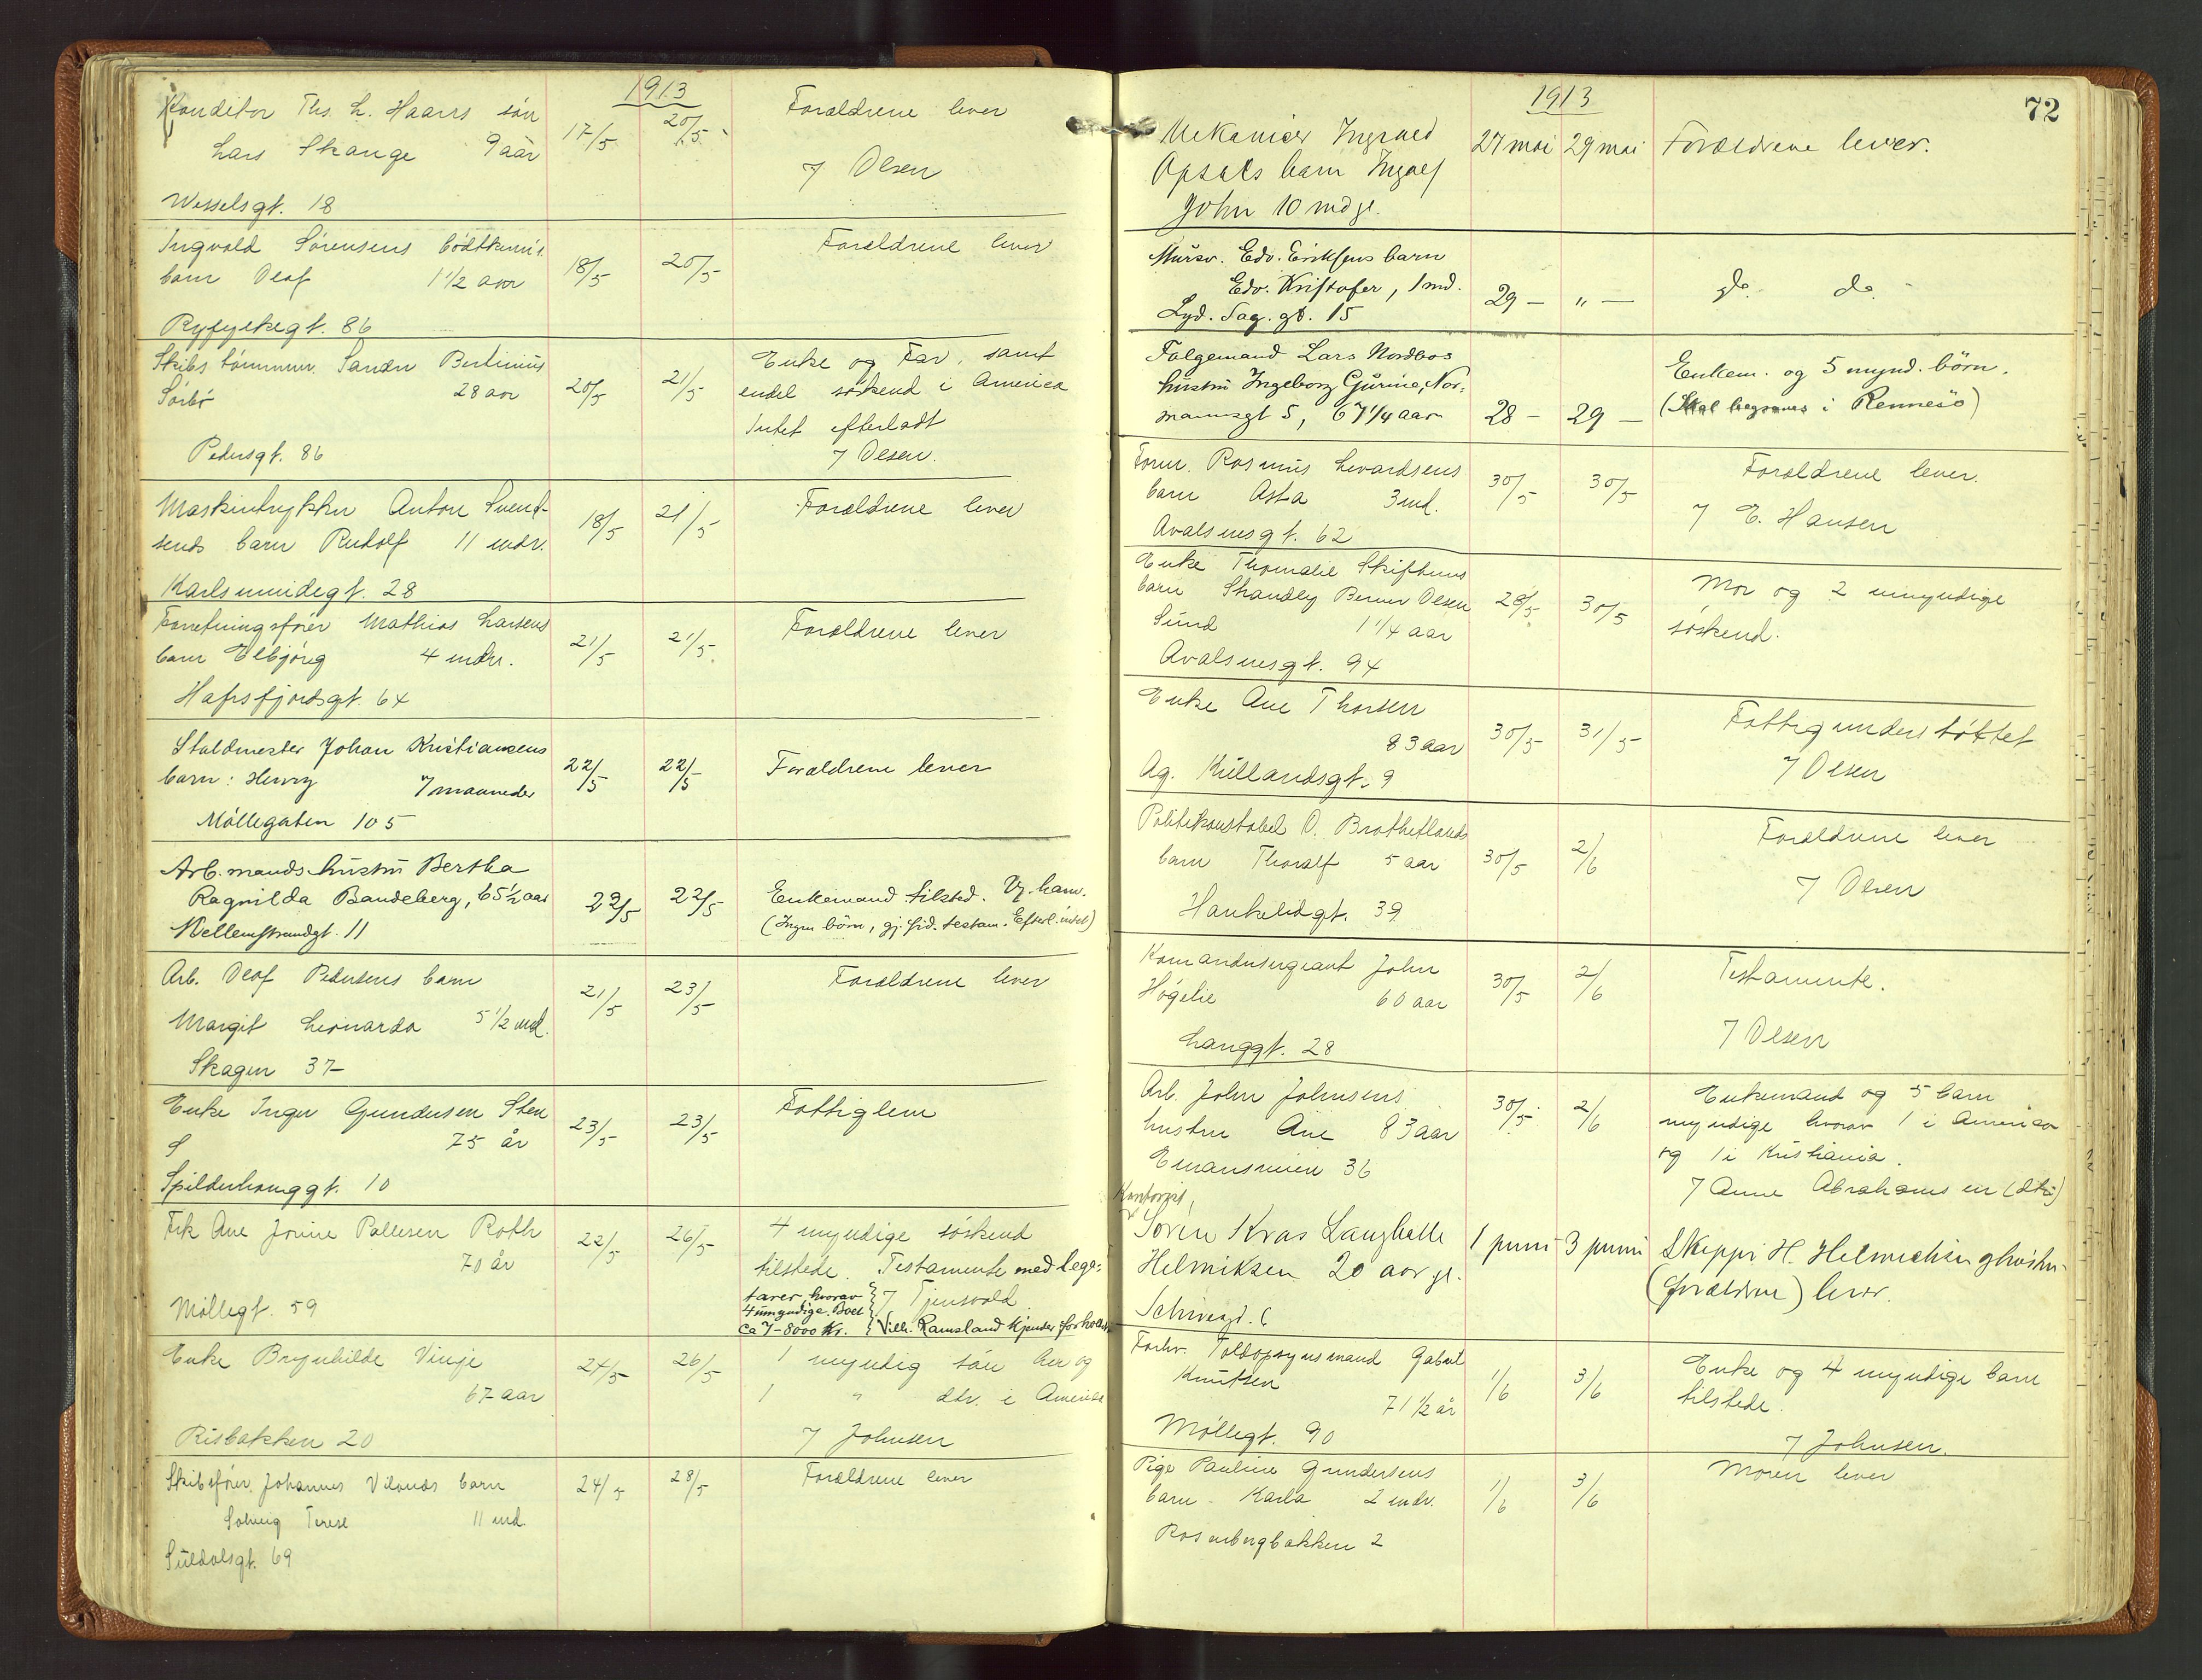 1913
Konditor Ths. L. Haarrs søn
Lars Skauge 9 aar 17/5 20/5 Forældrene lever
7 Olsen
Wesselsgt. 18
Ingvald Sørensens bödtkerm.
barn Olaf 1 1/2 aar 18/5 20/5 Forældrene lever
Ryfylkegt. 86
Skibstømmerm. Sander Bertinius
Sørbø 28 aar 20/5 21/5 Enke og Far, samt
endel søskend i America
Intet efterladt
7 Olsen.
Pedersgt. 86
Maskintrykker Anton Svend-
sends barn Rudolf 11 mdr. 18/5 21/5 Forældrene lever
Karlsmindegt. 28
Forretningsfører Mathias Larsens
barn Elbjørg 4 mdr. 21/5 21/5 Forældrene lever
Hafrsfjordsgt. 64
Staldmester Johan Kristiansens
barn: Henry 7 maaneder 22/5 22/5 Forældrene lever
Møllegaten 105
Arb.mands hustru Bertha
Ragnilda Bandeberg, 65 1/2 aar 22/5 22/5 Enkemand tilsted. Vg. ham.
(Ingen børn, gj.sid. testam. Efterl. intet)
Mellemstrandgt. 11
Arb. Olaf Pedersens barn
Margit Leonarda 5 1/2 md. 21/5 23/5 Forældrene lever
Skagen 37
Enke Inger Gundersen Sten
75 år 23/5 23/5 Fattiglem
Spilderhauggt. 10
Frk Ane Jorine Pallesen Roth
70 år 22/5 26/5 4 myndige søskend
tilstede. Testamente med lega-
tarer, hvorav
4 umyndige. Boet
ca 7-8000 Kr.
7 Tjensvold
Vilh. Ramsland kjender forhold
Møllegt. 59
Enke Brynhilde Vinje
67 aar 24/5 26/5 1 myndig søn her og
1 " dtr. i Amerika
7 Johnsen
Risbakken 20
Skibsfører Johannes Vilands barn
Solveig Terese 11 md. 24/5 28/5 Forældrene lever
Suldalsgt. 69
72
1913
Mekaniker Ingvald
Opsals barn Ingolf
John 10 md gl. 27 mai 29 mai Forældrene lever.
Mursv. Edv. Eriksens barn
Edv. Kristofer, 1 md. 29 — " — do. do.
Lyd. Sag. gt. 15
Følgemand Lars Nordbøs
hustru Ingeborg Gurine, Nor-
mannsgt 5, 67 1/4 aar 28 — 29 — Enkem. og 5 mynd. börn.
(Skal begraves i Rennesø)
Form. Rasmus Levardsens
barn Asta 3 md. 30/5 30/5 Forældrene lever.
7 E. Hansen
Avalsnesgt. 62
Enke Thomalie Skiftuns
barn Standley Berner Olsen
Sund 1 1/4 aar 28/5 30/5 Mor og 2 umyndige
søskend.
Avalsnesgt. 94
Enke Ane Thorsen
83 aar 30/5 31/5 Fattigunderstøttet
7 Olsen
Ag. Kiellandsgt. 9
Politikonstabel O. Brathetlands
barn Thoralf 5 aar 30/5 2/6 Forældrene lever
7 Olsen
Haukelidgt. 39
Komandersergeant John
Høgelie 60 aar 30/5 2/6 Testamente.
7 Olsen
Langgt. 28
Arb. John Johnsens
hustru Ane 83 aar 30/5 2/6 Enkemand og 5 barn
myndige hvorav 1 i America
og 1 i Kristiania.
7 Anne Abrahamsen (dtr)
Emansveien 36
Kontorist,
Søren Kras Langhelle
Helmiksen 20 aar gl. 1 juni 3 juni Skeppr H. Helmichsen & hustru
(forældrene) lever.
Forhv. Toldopsynsmand Gabriel
Knutsen 71 1/2 år 1/6 3/6 Enke og 4 myndige barn
tilstede.
7 Johnsen.
Møllegt. 90
Pige Pauline Gundersens
barn Karla 2 mdr. 1/6 3/6 Moren lever
Rosenbergbakken 2